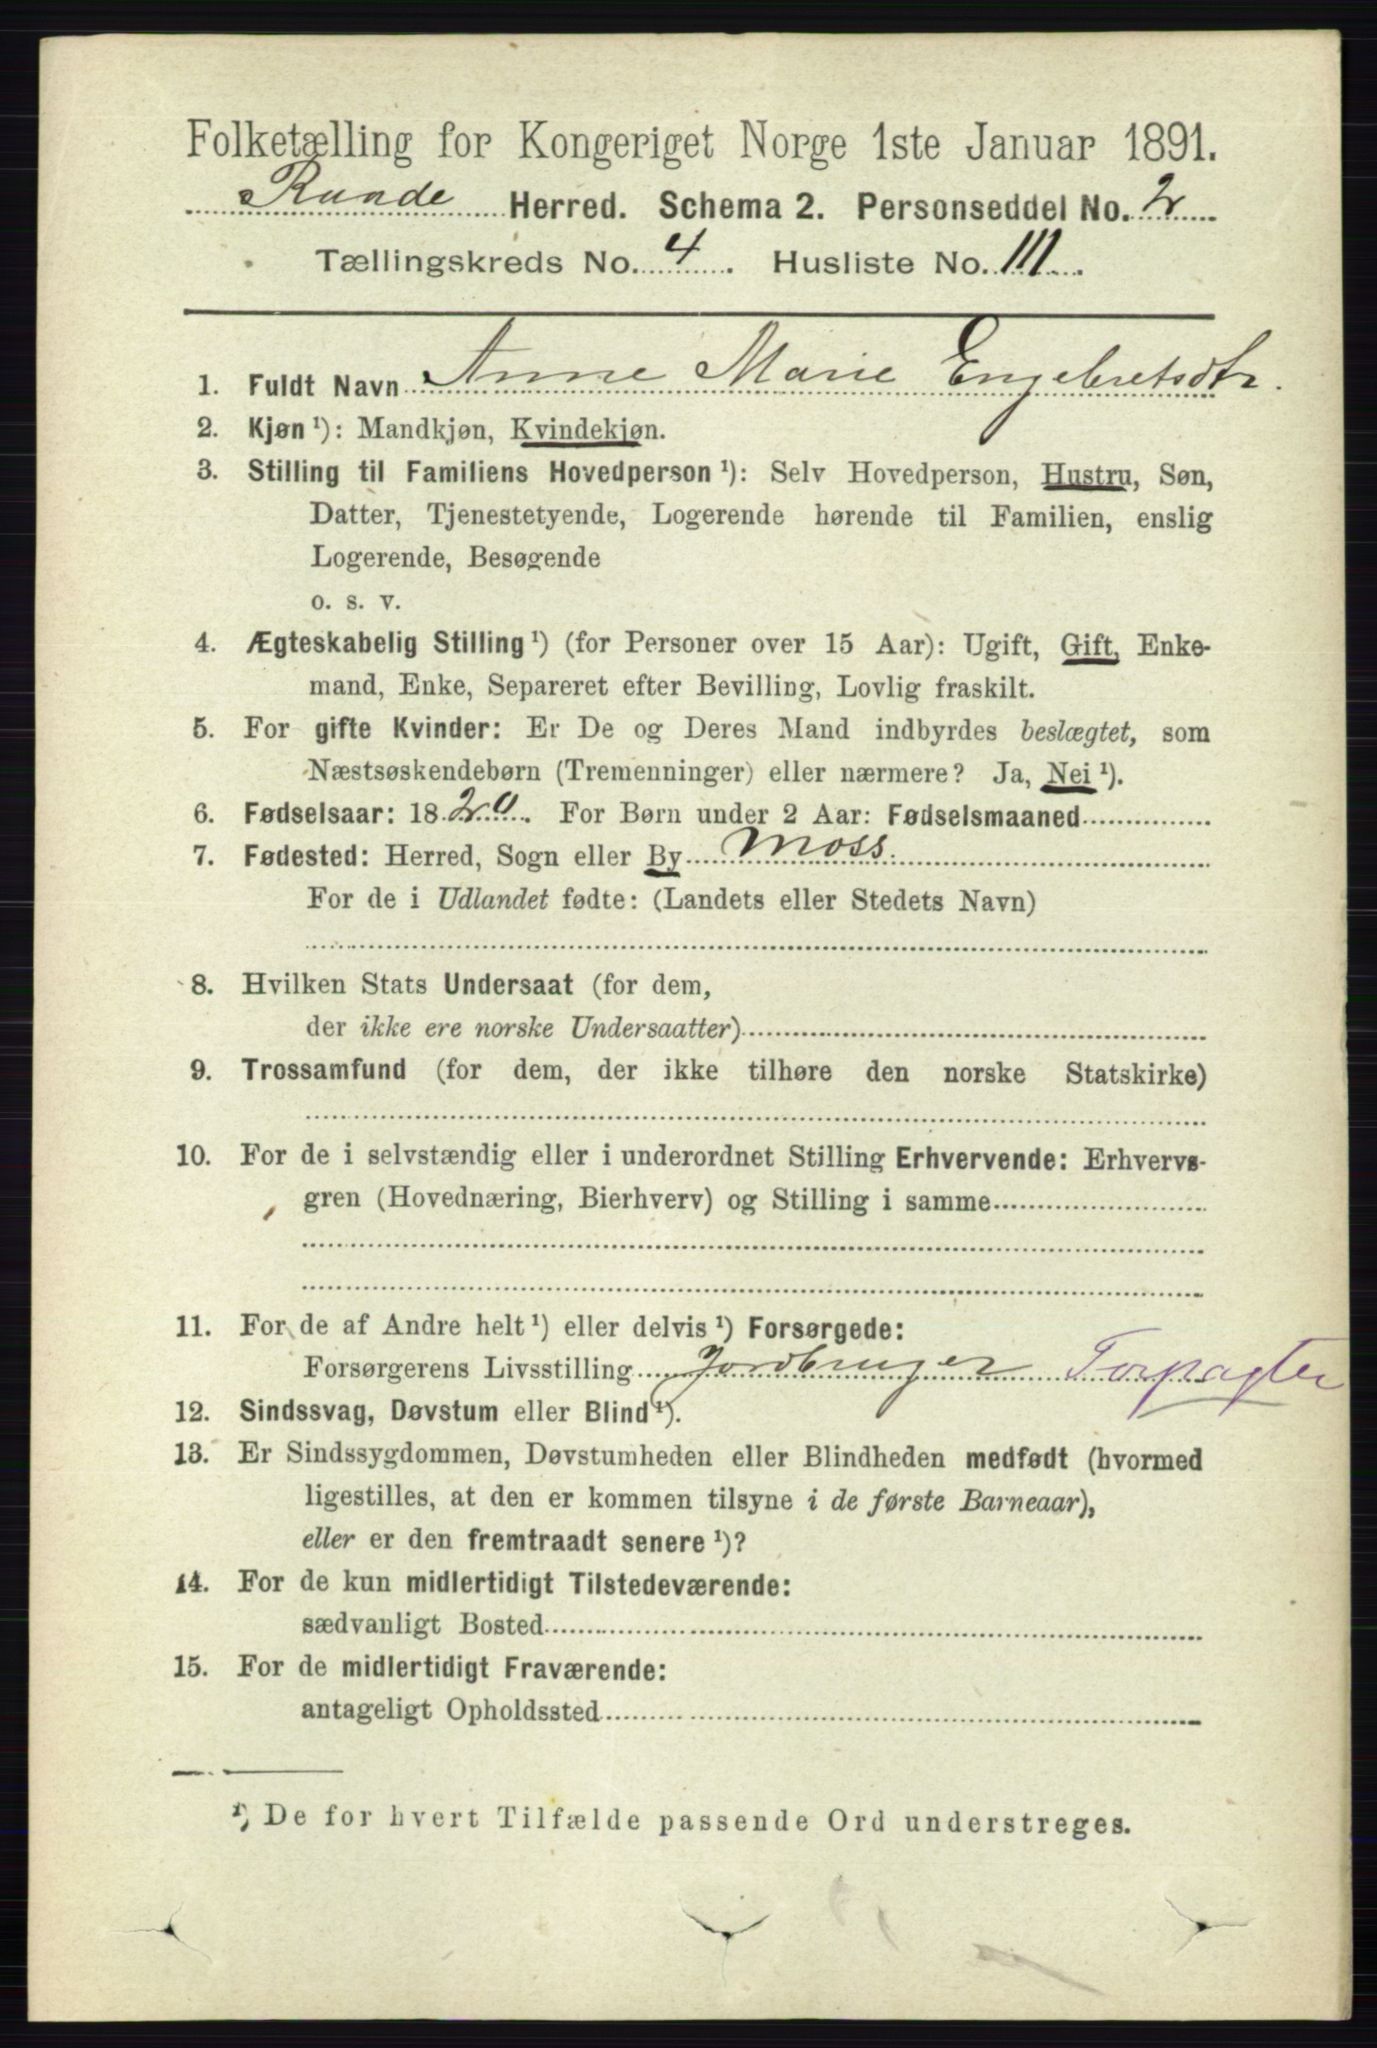 Folketælling for Kongeriget Norge 1ste Januar 1891.
Raade Herred. Schema 2. Personseddel No. 2
Tællingskreds No. 4. Husliste No. 111.
1. Fuldt Navn Anne Marie Engebretsdtr.
2. Kjøn ¹): Mandkjøn, Kvindekjøn.
3. Stilling til Familiens Hovedperson ¹): Selv Hovedperson, Hustru, Søn,
Datter, Tjenestetyende, Logerende hørende til Familien, enslig
Logerende, Besøgende
o. s. v.
4. Ægteskabelig Stilling ¹) (for Personer over 15 Aar): Ugift, Gift, Enke-
mand, Enke, Separeret efter Bevilling, Lovlig fraskilt.
5. For gifte Kvinder: Er De og Deres Mand indbyrdes beslægtet, som
Næstsøskendebørn (Tremenninger) eller nærmere? Ja, Nei ¹).
6. Fødselsaar: 1820. For Børn under 2 Aar: Fødselsmaaned
7. Fødested: Herred, Sogn eller By Moss.
For de i Udlandet fødte: (Landets eller Stedets Navn)
8. Hvilken Stats Undersaat (for dem,
der ikke ere norske Undersaatter)
9. Trossamfund (for dem, der ikke tilhøre den norske Statskirke)
10. For de i selvstændig eller i underordnet Stilling Erhvervende: Erhvervs-
gren (Hovednæring, Bierhverv) og Stilling i samme
11. For de af Andre helt ¹) eller delvis ¹) Forsørgede:
Forsørgerens Livsstilling Jordbruger Forpagter
12. Sindssvag, Døvstum eller Blind ¹).
13. Er Sindssygdommen, Døvstumheden eller Blindheden medfødt (hvormed
ligestilles, at den er kommen tilsyne i de første Barneaar),
eller er den fremtraadt senere ¹)?
14. For de kun midlertidigt Tilstedeværende:
sædvanligt Bosted
15. For de midlertidigt Fraværende:
antageligt Opholdssted
¹) De for hvert Tilfælde passende Ord understreges.